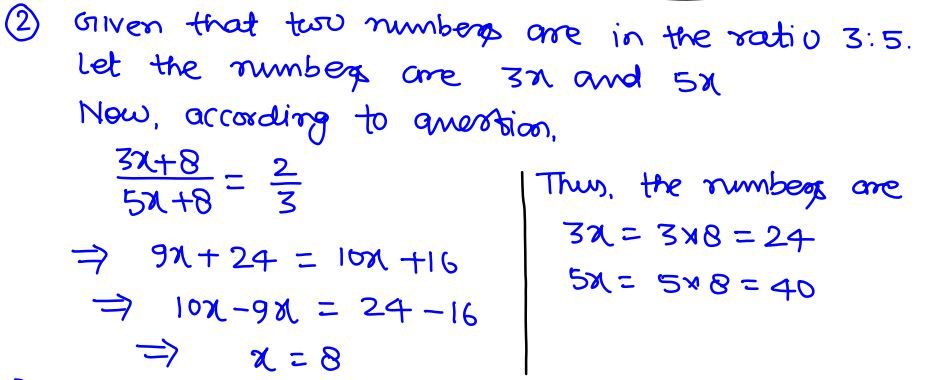 ② Given that two numbers are in the ratio 3:5.
Let the numbers are 3x and 5x
Now, according to question,
(3x+8)/(5x+8) = 2/3
⇒ 9x + 24 = 10x + 16
⇒ 10x - 9x = 24 - 16
⇒ x = 8
Thus, the numbers are
3x = 3×8 = 24
5x = 5×8 = 40